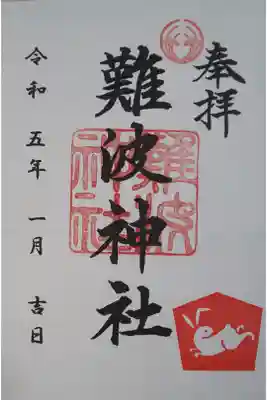 奉拝
難波神社
難波神社
令和五年一月吉日